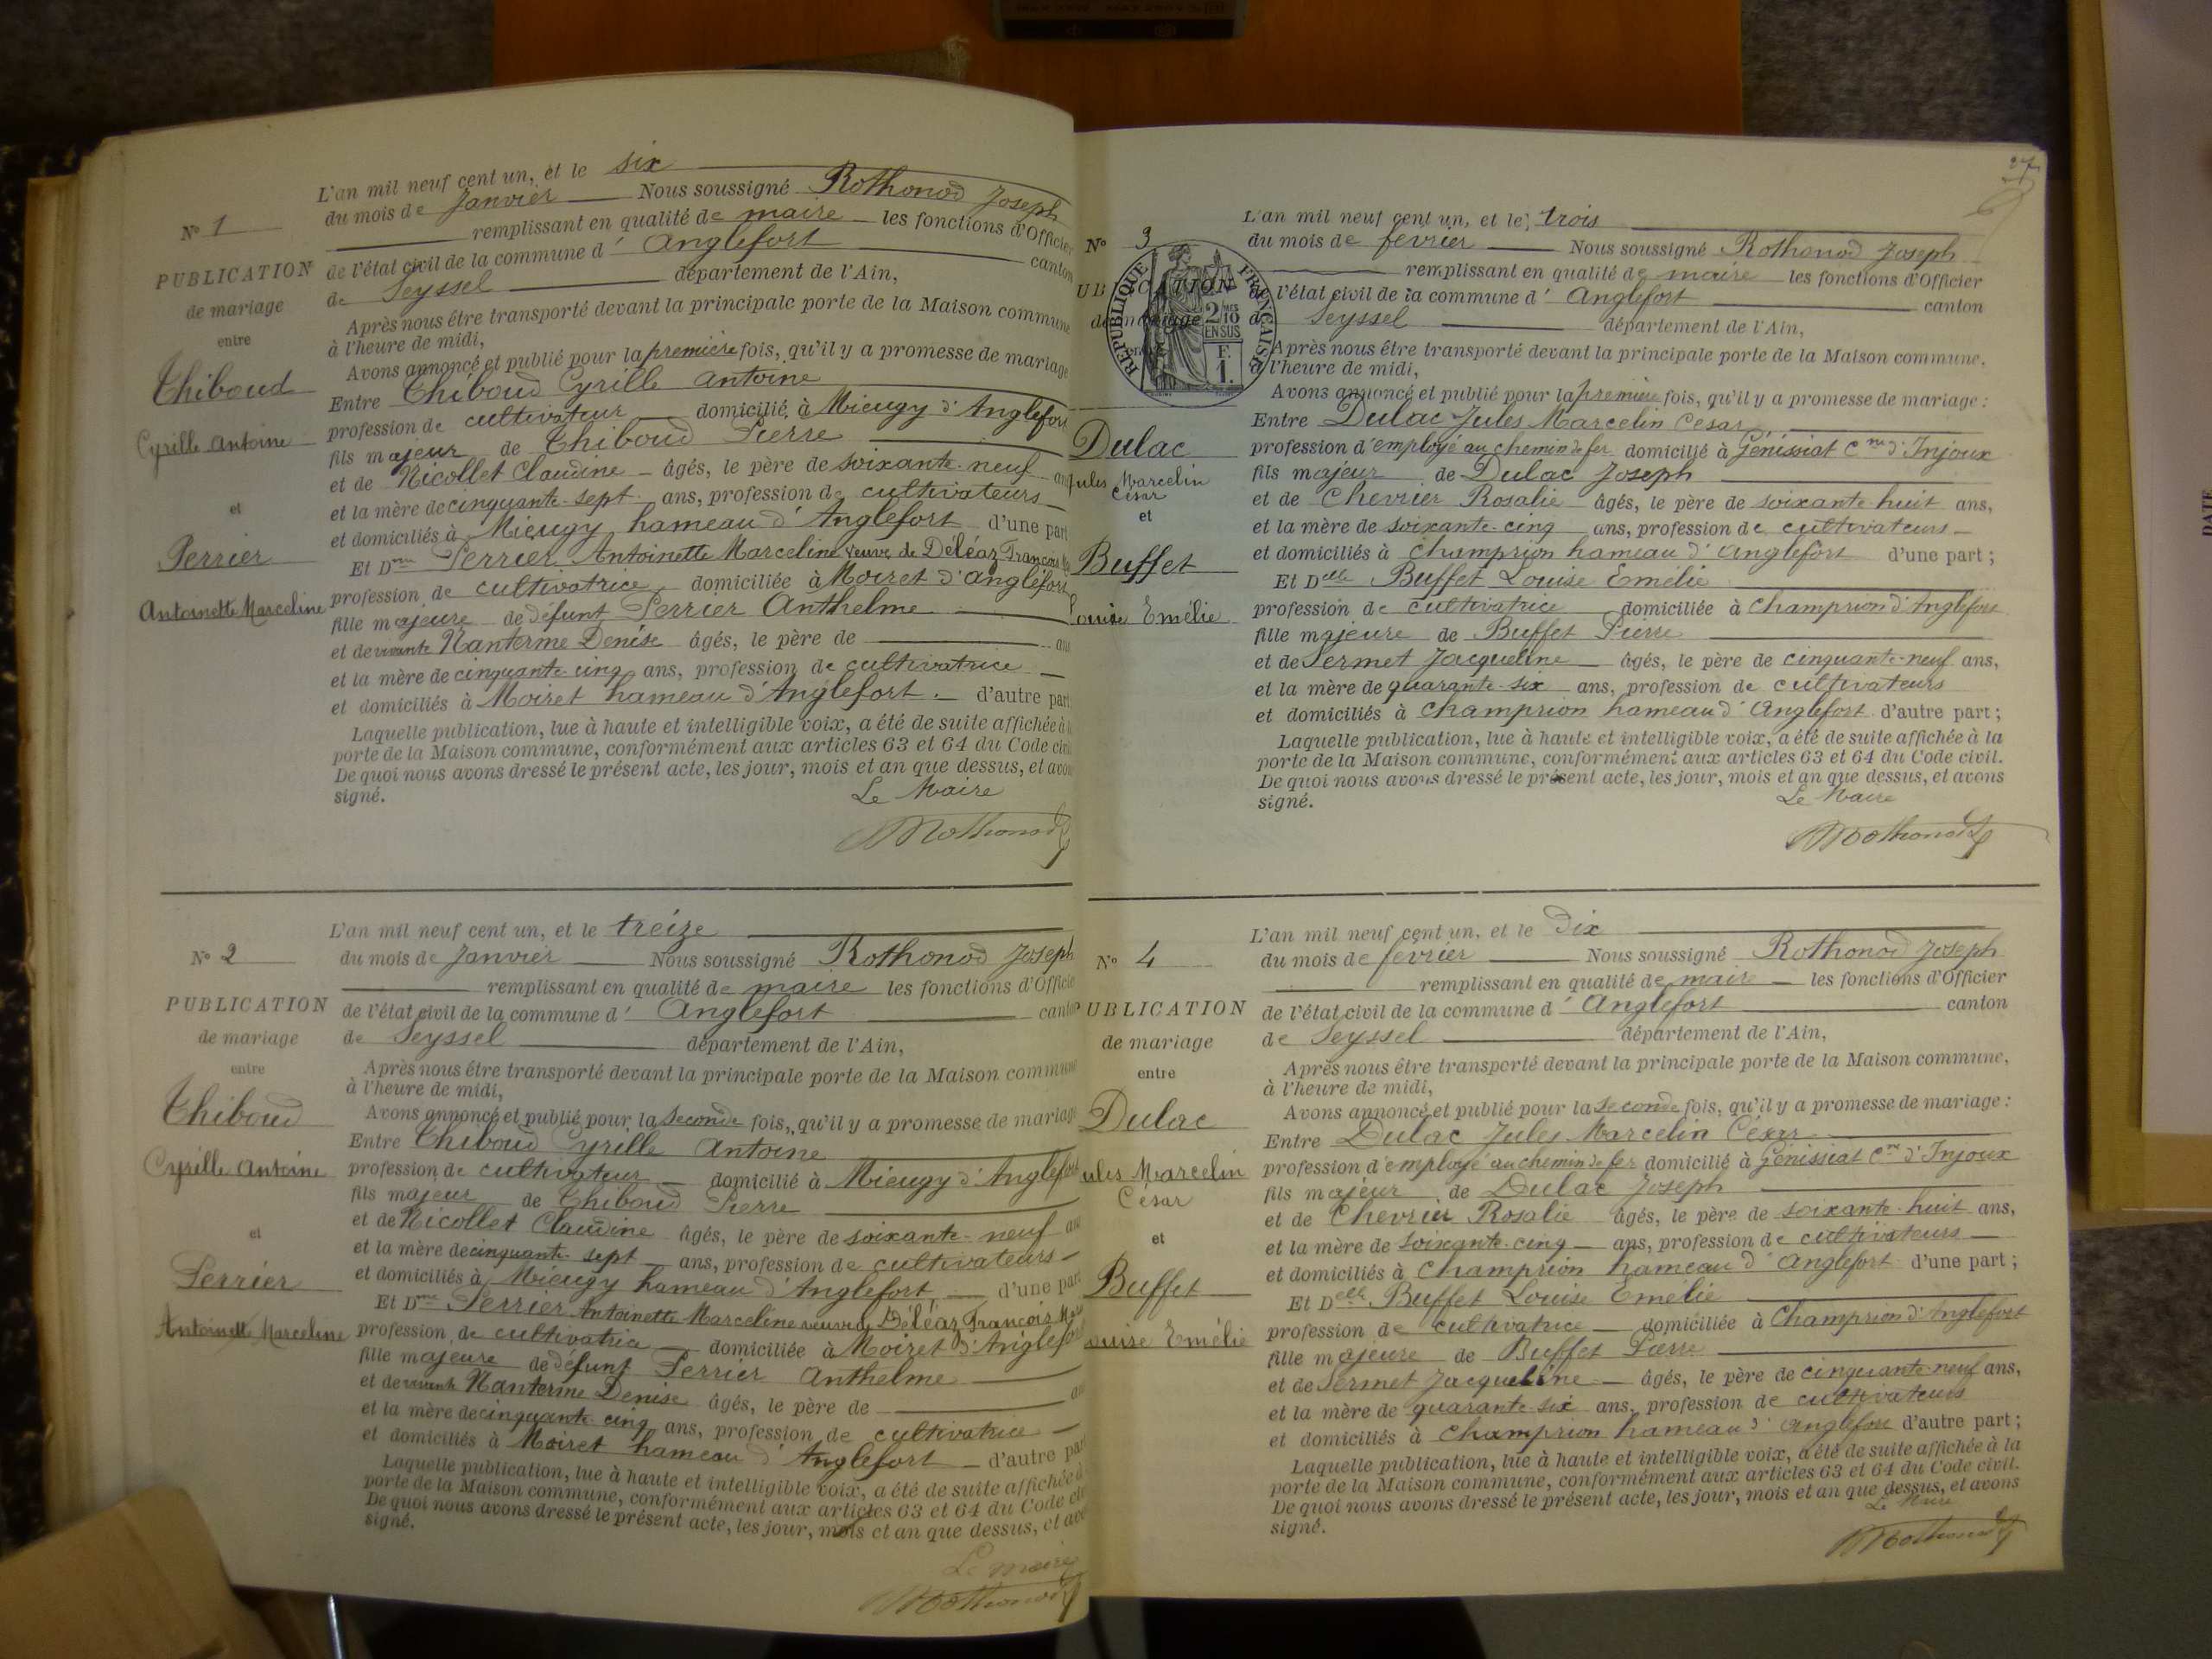 L'an mil neuf cent un, et le six
Nº 1
du mois de Janvier Nous soussigné Rothonod Joseph
remplissant en qualité de maire les fonctions d'Officier
PUBLICATION
de l'état civil de la commune d' Anglefort canton
de Seyssel département de l'Ain,
de mariage
Après nous être transporté devant la principale porte de la Maison commune
à l'heure de midi,
entre
Avons annoncé et publié pour la première fois, qu'il y a promesse de mariage
Thiboud
Entre Thiboud Cyrille Antoine
profession de cultivateur domicilié à Mieugy d'Anglefort
Cyrille Antoine
fils majeur de Thiboud Pierre
et de Nicollet Claudine âgés, le père de soixante-neuf ans
et la mère de cinquante-sept ans, profession de cultivateurs
et
et domiciliés à Mieugy hameau d'Anglefort d'une part
Perrier
Et Dme Perrier Antoinette Marceline veuve de Déléaz François
profession de cultivatrice domiciliée à Moiret d'Anglefort
Antoinette Marceline
fille majeure de défunt Perrier Anthelme
et de vivante Nanterme Denise âgés, le père de ans
et la mère de cinquante-cinq ans, profession de cultivatrice
et domiciliés à Moiret hameau d'Anglefort. d'autre part
Laquelle publication, lue à haute et intelligible voix, a été de suite affichée à la
porte de la Maison commune, conformément aux articles 63 et 64 du Code civil
De quoi nous avons dressé le présent acte, les jour, mois et an que dessus, et avons
signé.
Le Maire
Rothonod
L'an mil neuf cent un, et le treize
Nº 2
du mois de Janvier Nous soussigné Rothonod Joseph
remplissant en qualité de maire les fonctions d'Officier
PUBLICATION
de l'état civil de la commune d' Anglefort canton
de mariage
de Seyssel département de l'Ain,
entre
Après nous être transporté devant la principale porte de la Maison commune
à l'heure de midi,
Thiboud
Avons annoncé et publié pour la seconde fois, qu'il y a promesse de mariage
Entre Thiboud Cyrille Antoine
Cyrille Antoine
profession de cultivateur domicilié à Mieugy d'Anglefort
fils majeur de Thiboud Pierre
et de Nicollet Claudine âgés, le père de soixante-neuf ans
et
et la mère de cinquante-sept ans, profession de cultivateurs
et domiciliés à Mieugy hameau d'Anglefort d'une part
Perrier
Et Dme Perrier Antoinette Marceline veuve de Déléaz François
Antoinette Marceline
profession de cultivatrice domiciliée à Moiret d'Anglefort
fille majeure de défunt Perrier Anthelme
et de vivante Nanterme Denise âgés, le père de ans
et la mère de cinquante-cinq ans, profession de cultivatrice
et domiciliés à Moiret hameau d'Anglefort d'autre part
Laquelle publication, lue à haute et intelligible voix, a été de suite affichée à
porte de la Maison commune, conformément aux articles 63 et 64 du Code civ
De quoi nous avons dressé le présent acte, les jour, mois et an que dessus, et avo
signé.
Le maire
Rothonod
27
L'an mil neuf cent un, et le trois
Nº 3
du mois de février Nous soussigné Rothonod Joseph
remplissant en qualité de maire les fonctions d'Officier
UBLICATION
de l'état civil de la commune d' Anglefort canton
de mariage
de Seyssel département de l'Ain,
RÉPUBLIQUE FRANÇAISE
2/10 EN SUS
F. 1.
Après nous être transporté devant la principale porte de la Maison commune.
à l'heure de midi,
Avons annoncé et publié pour la première fois, qu'il y a promesse de mariage :
Entre Dulac Jules Marcelin César
Dulac
profession d'employé au chemin de fer domicilié à Génissiat Cne d'Injoux
ules Marcelin
César
fils majeur de Dulac Joseph
et de Chevrier Rosalie âgés, le père de soixante-huit ans,
et
et la mère de soixante-cinq ans, profession de cultivateurs
et domiciliés à Champrion hameau d'Anglefort d'une part ;
Buffet
Et Delle Buffet Louise Emélie
profession de cultivatrice domiciliée à Champrion d'Anglefort
Louise Emélie
fille majeure de Buffet Pierre
et de Sermet Jacqueline âgés, le père de cinquante-neuf ans,
et la mère de quarante-six ans, profession de cultivateurs
et domiciliés à Champrion hameau d'Anglefort d'autre part ;
Laquelle publication, lue à haute et intelligible voix, a été de suite affichée à la
porte de la Maison commune, conformément aux articles 63 et 64 du Code civil.
De quoi nous avons dressé le présent acte, les jour, mois et an que dessus, et avons
signé.
Le Maire
Rothonod
L'an mil neuf cent un, et le Dix
Nº 4
du mois de février Nous soussigné Rothonod Joseph
remplissant en qualité de maire les fonctions d'Officier
UBLICATION
de l'état civil de la commune d' Anglefort canton
de mariage
de Seyssel département de l'Ain,
entre
Après nous être transporté devant la principale porte de la Maison commune,
à l'heure de midi,
Dulac
Avons annoncé et publié pour la seconde fois, qu'il y a promesse de mariage :
Entre Dulac Jules Marcelin César
ules Marcelin
César
profession d'employé au chemin de fer domicilié à Génissiat Cne d'Injoux
fils majeur de Dulac Joseph
et de Chevrier Rosalie âgés, le père de soixante-huit ans,
et
et la mère de soixante-cinq ans, profession de cultivateurs
et domiciliés à Champrion hameau d'Anglefort d'une part ;
Buffet
Et Delle Buffet Louise Emélie
ouise Emélie
profession de cultivatrice domiciliée à Champrion d'Anglefort
fille majeure de Buffet Pierre
et de Sermet Jacqueline âgés, le père de cinquante-neuf ans,
et la mère de quarante-six ans, profession de cultivateurs
et domiciliés à Champrion hameau d'Anglefort d'autre part ;
Laquelle publication, lue à haute et intelligible voix, a été de suite affichée à la
porte de la Maison commune, conformément aux articles 63 et 64 du Code civil.
De quoi nous avons dressé le présent acte, les jour, mois et an que dessus, et avons
signé.
Le Maire
Rothonod
DATE